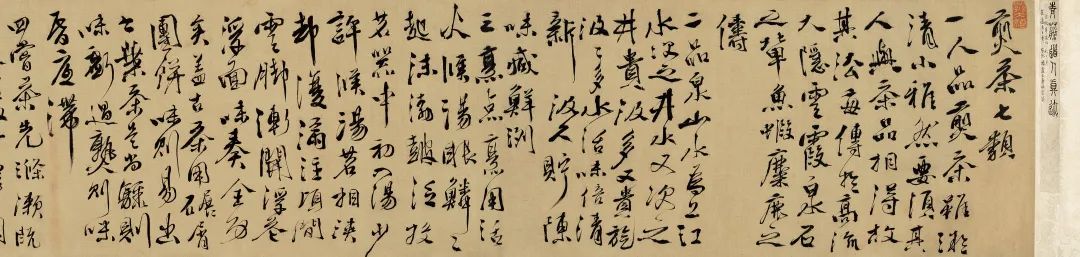 青藤道人真蹟
煎茶七類
一人品煎茶雖微
清小雅然要須其
人與茶品相得故
其法每傳於高流
大隱雲霞泉石
之輩魚蝦麋鹿之
儔
二品泉山水為上江
水次之井水又次之
井貴汲多又貴旋
汲汲多水活味倍清
新汲久貯陳
味減鮮冽
三烹點烹用活
火候湯眼鱗鱗
起沫渤鼓泛投
茗器中初入湯少
許候湯茗相浹
却復滿注頃間
雲脚漸開浮花
浮面味奏全功
矣蓋古茶用碾屑
團餅味則易出
今葉茶是尚驟則
味虧過熟則味
昏底滯
四嘗茶先滌漱既